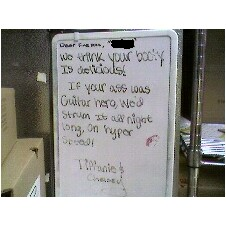 Dear
We think your booty
Is delicious!
If your ass was
Guitar hero, We'd
Strum it all night
long, On hyper
Speed!
Tiffanie &